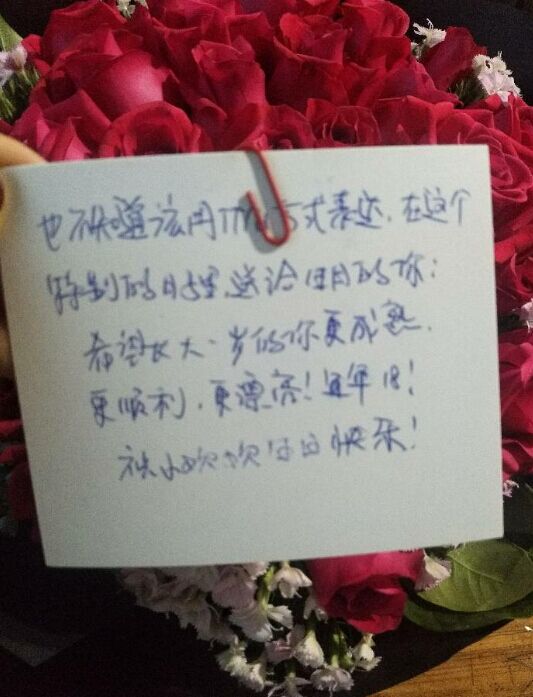 也不知道该用什么方式表达,在这个
特别的日子里,送给特别的你:
希望长大一岁的你更成熟,
更顺利,更漂亮!逐年18!
祝小欢欢生日快乐!